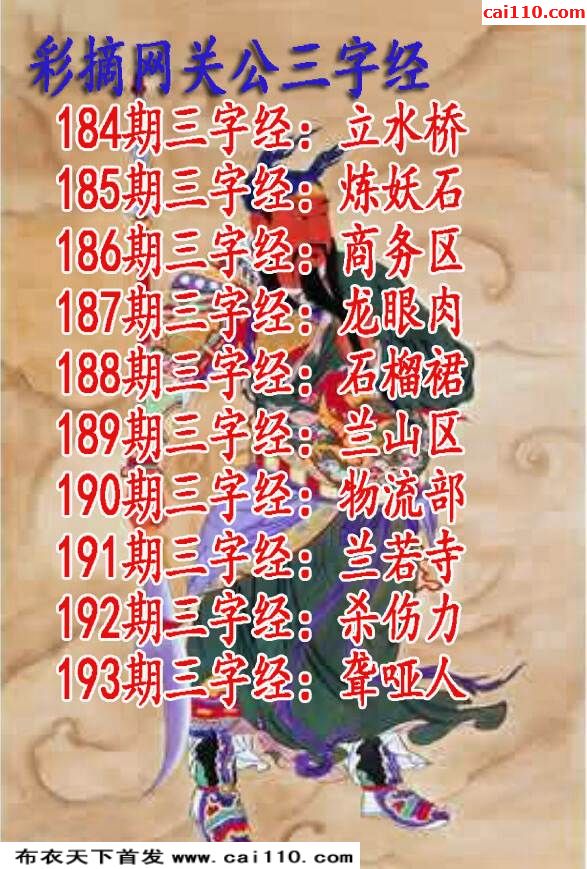 cai110.com
彩摘网关公三字经
184期三字经：立水桥
185期三字经：炼妖石
186期三字经：商务区
187期三字经：龙眼肉
188期三字经：石榴裙
189期三字经：兰山区
190期三字经：物流部
191期三字经：兰若寺
192期三字经：杀伤力
193期三字经：聋哑人
布衣天下首发 www.cai110.com